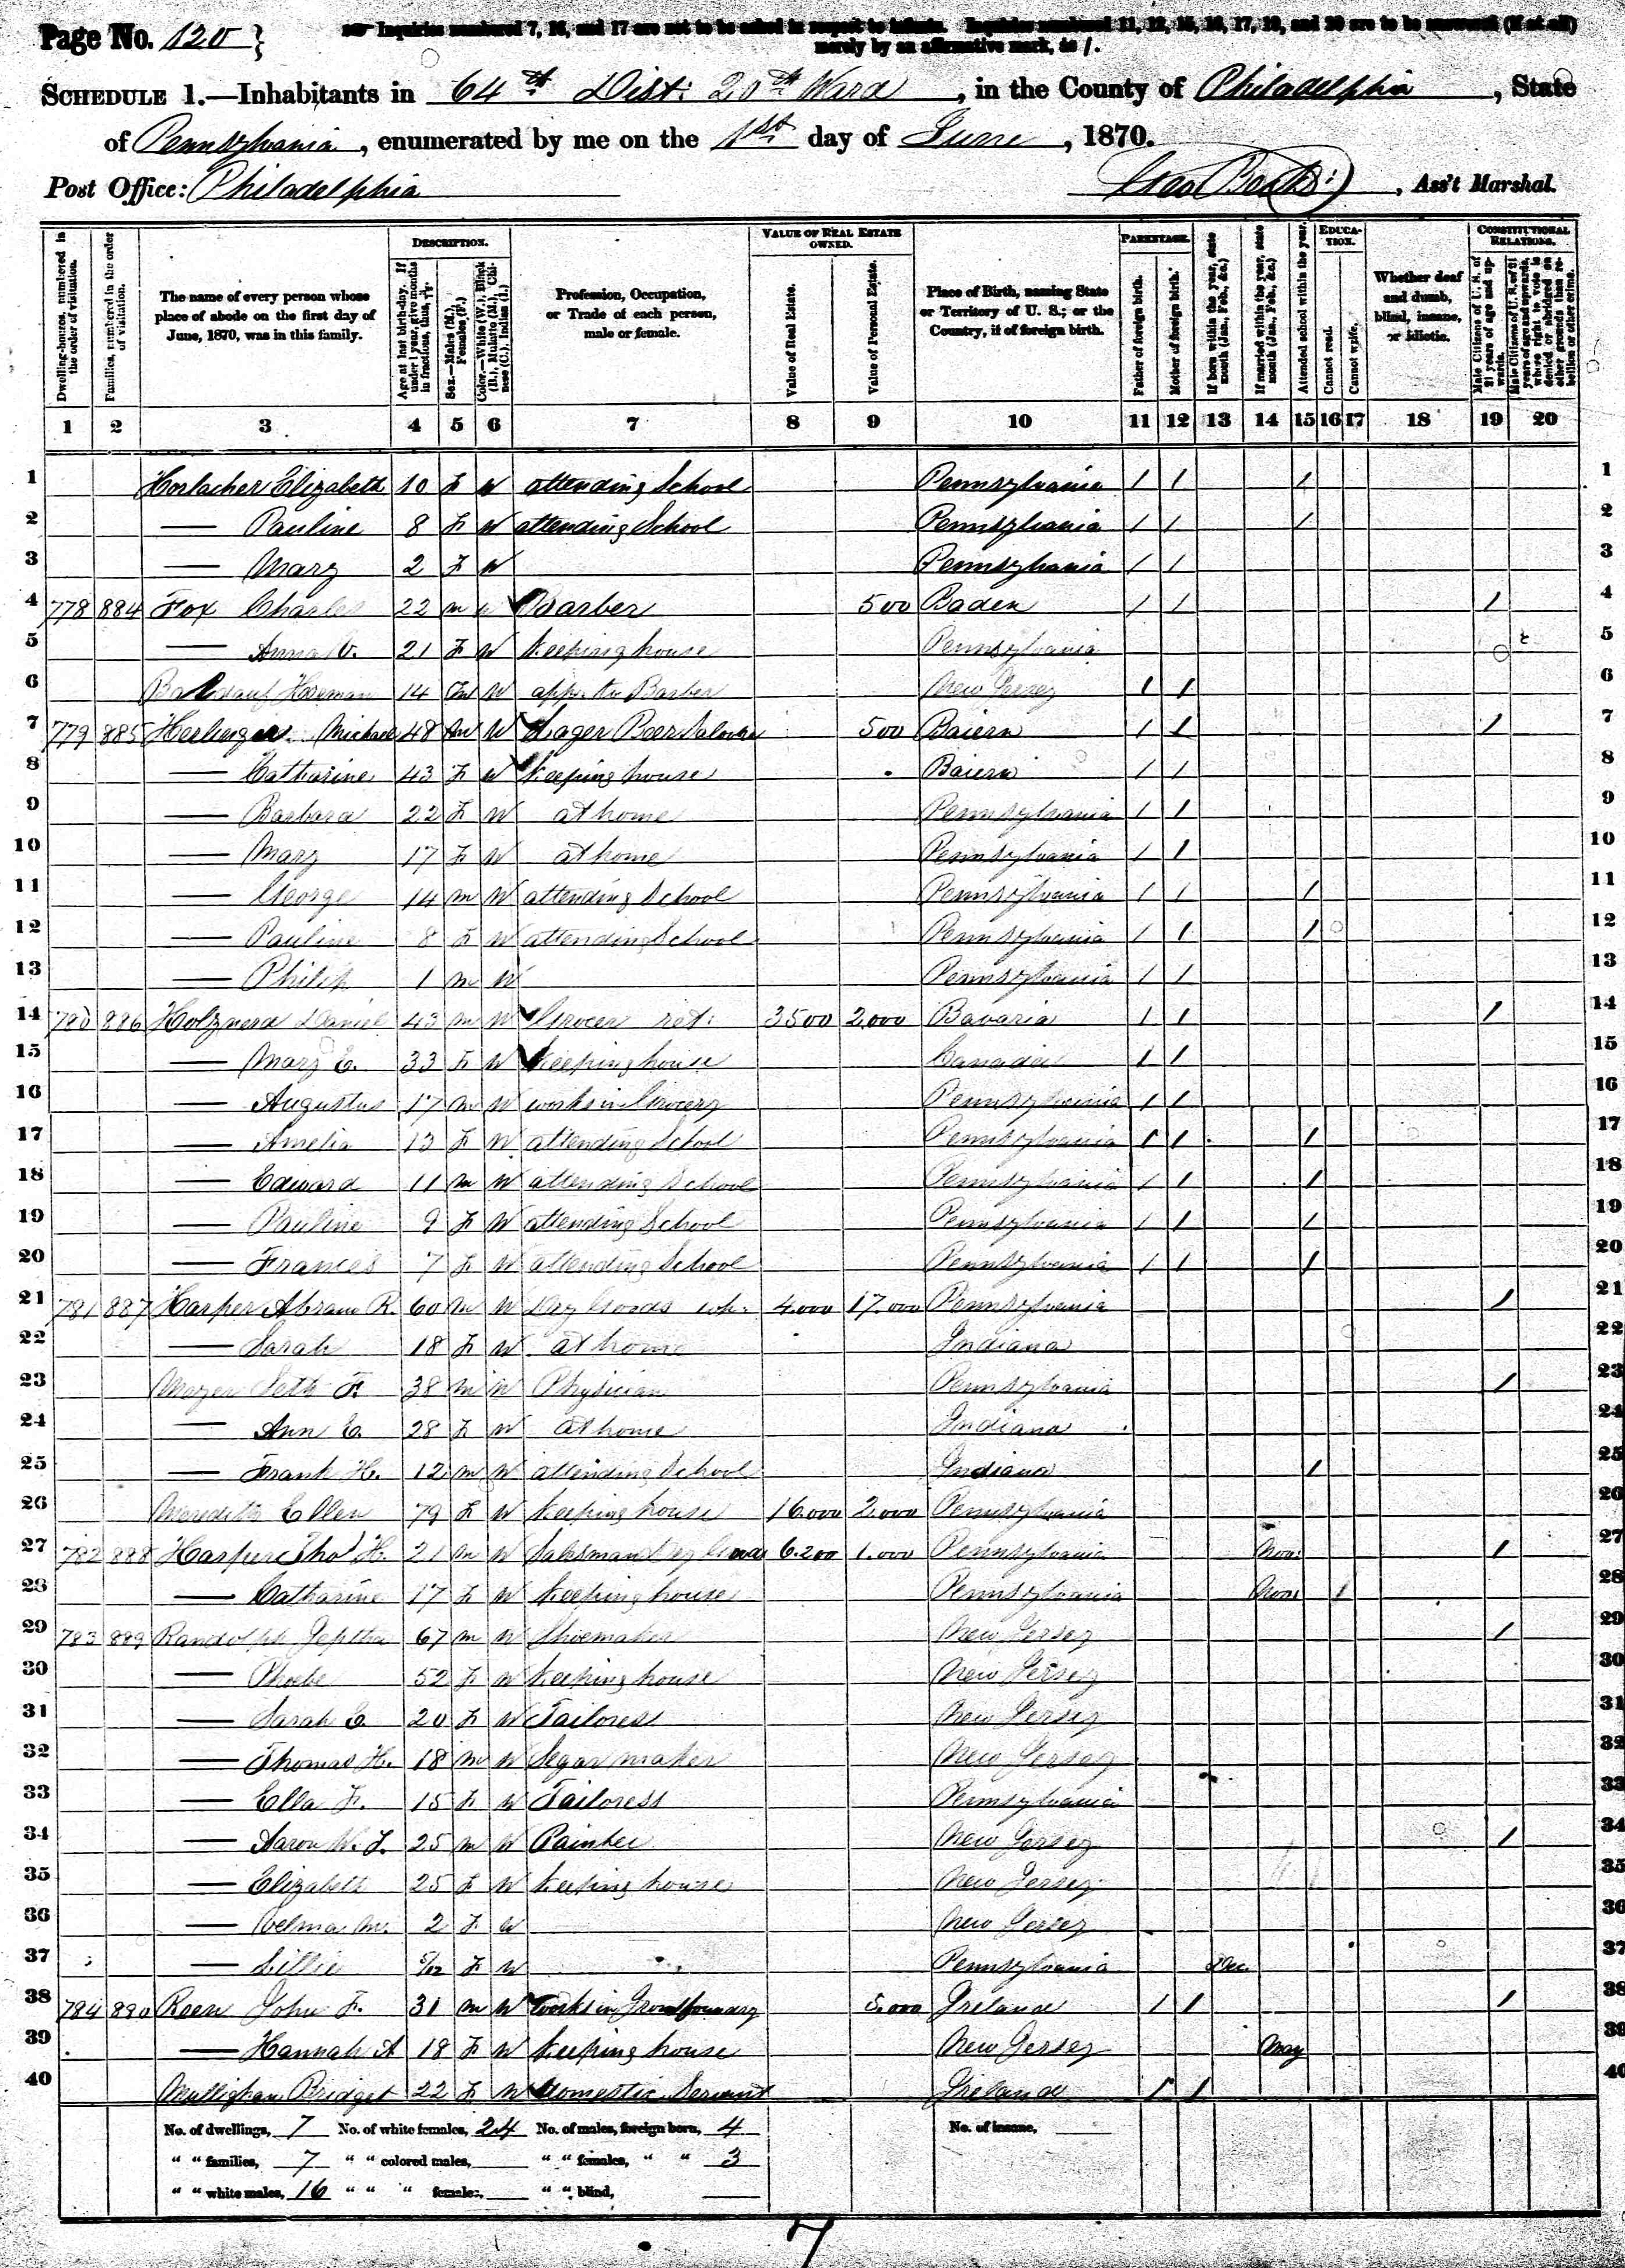 Page No. 120 }
☞ Inquiries numbered 7, 16, and 17 are not to be asked in respect to infants. Inquiries numbered 11, 12, 15, 16, 17, 19, and 20 are to be answered (if at all)
merely by an affirmative mark, as /.
SCHEDULE 1.—Inhabitants in 64th Dist: 20th Ward, in the County of Philadelphia, State
of Pennsylvania, enumerated by me on the 1st day of June, 1870.
Post Office: Philadelphia , Ass't Marshal.
Dwelling-houses, numbered in the order of visitation.
Families, numbered in the order of visitation.
The name of every person whose place of abode on the first day of June, 1870, was in this family.
DESCRIPTION.
Age at last birth-day. If under 1 year, give months in fractions, thus,
Sex.—Males (M.), Females (F.)
Color.—White (W.), Black (B.), Mulatto (M.), Chinese (C.), Indian (I.)
Profession, Occupation, or Trade of each person, male or female.
VALUE OF REAL ESTATE OWNED.
Value of Real Estate.
Value of Personal Estate.
Place of Birth, naming State or Territory of U. S.; or the Country, if of foreign birth.
PARENTAGE.
Father of foreign birth.
Mother of foreign birth.
If born within the year, state month (Jan., Feb., &c.)
If married within the year, state month (Jan., Feb., &c.)
Attended school within the year.
EDUCATION.
Cannot read.
Cannot write.
Whether deaf and dumb, blind, insane, or idiotic.
CONSTITUTIONAL RELATIONS.
Male Citizens of U. S. of 21 years of age and upwards.
Male Citizens of U. S. of 21 years of age and upwards, whose right to vote is denied or abridged on other grounds than rebellion or other crime.
1 2 3 4 5 6 7 8 9 10 11 12 13 14 15 16 17 18 19 20
1 Horlacher Elizabeth 10 F W attending School Pennsylvania / / / 1
2 — Pauline 8 F W attending School Pennsylvania / / / 2
3 — Mary 2 F W Pennsylvania / / 3
4 778 884 Fox Charles 22 m W Barber 500 Baden / / / 4
5 — Anna 21 F W Keeping house Pennsylvania 5
6 Herman 14 m W app. to Barber New Jersey / / 6
7 779 885 Michael 48 m W Lager Beer Saloon 500 Baiern / / / 7
8 — Catharine 43 F W Keeping house Baiern / / 8
9 — Barbara 22 F W at home Pennsylvania / / 9
10 — Mary 17 F W at home Pennsylvania / / 10
11 — George 14 m W attending School Pennsylvania / / / 11
12 — Pauline 8 F W attending School Pennsylvania / / / 12
13 — Philip 1 m W Pennsylvania / / 13
14 780 886 Daniel 43 m W Grocer ret: 3500 2,000 Bavaria / / / 14
15 — Mary E. 33 F W Keeping house Canada / / 15
16 — Augustus 17 m W works in Grocery Pennsylvania / / 16
17 — Amelia 13 F W attending School Pennsylvania / / / 17
18 — Edward 11 m W attending School Pennsylvania / / / 18
19 — Pauline 9 F W attending School Pennsylvania / / / 19
20 — Frances 7 F W attending School Pennsylvania / / / 20
21 781 887 Harper Abram R. 60 m W Dry Goods wh: 4.000 17.000 Pennsylvania / 21
22 — Sarah 18 F W at home Indiana 22
23 Mayer Seth F. 38 m W Physician Pennsylvania / 23
24 — Ann E. 28 F W at home Indiana 24
25 — Frank H. 12 m W attending School Indiana / 25
26 Meredith Ellen 79 F W Keeping house 16.000 2.000 Pennsylvania 26
27 782 888 Harper Tho' H. 21 m W Salesman Dry Goods 6.200 1.000 Pennsylvania Nov: / 27
28 — Catharine 17 F W Keeping house Pennsylvania Nov: / 28
29 783 889 Randolph Jeptha 67 m W Shoemaker New Jersey / 29
30 — Phoebe 52 F W Keeping house New Jersey 30
31 — Sarah E. 20 F W Tailoress New Jersey 31
32 — Thomas H. 18 m W Segar maker New Jersey 32
33 — Ella F. 15 F W Tailoress Pennsylvania 33
34 — Aaron W. F. 25 m W Painter New Jersey / 34
35 — Elizabeth 25 F W Keeping house New Jersey 35
36 — Velma M. 2 F W New Jersey 36
37 — Lillie 5/12 F W Pennsylvania Dec. 37
38 784 890 Reen John F. 31 m W works in Iron foundry 5.000 Ireland / / / 38
39 — Hannah A 18 F W Keeping house New Jersey May 39
40 Mullighan Bridget 22 F W domestic Servant Ireland / / 40
No. of dwellings, 7 No. of white females, 24 No. of males, foreign born, 4 No. of insane,
" " families, 7 " " colored males, " " females, " " 3
" " white males, 16 " " " females, " " blind,
7